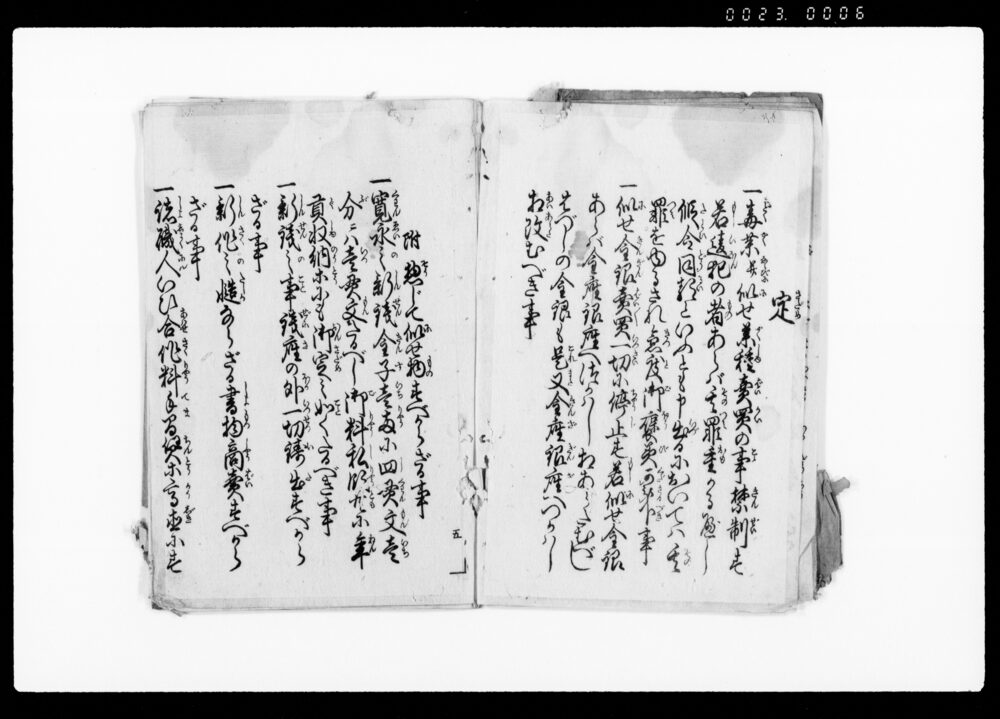 0023. 0006
定
一毒薬并似せ薬種売買の事禁制す
若違犯の者あらバ其罪重かるべし
仮令同類といふとも申出るにおいてハ其
罪をゆるされ急度御褒美可被下事
一似せ金銀売買一切に停止す若似せ金銀
あらバ金座銀座へつかハし相あらたむべし
はづしの金銀も是又金座銀座へつかハし
相改むべき事
附惣じて似せ物すべからざる事
一寛永之新銭金子壱両に四貫文壱
分ハ壱貫文たるべし御料私領共に年
貢収納等にも御定之如くたるべき事
一新銭之事銭座の外一切鋳出すべから
ざる事
一新作之慥ならざる書物商売すべから
ざる事
一諸職人いひ合作料手間賃等高直にす
五